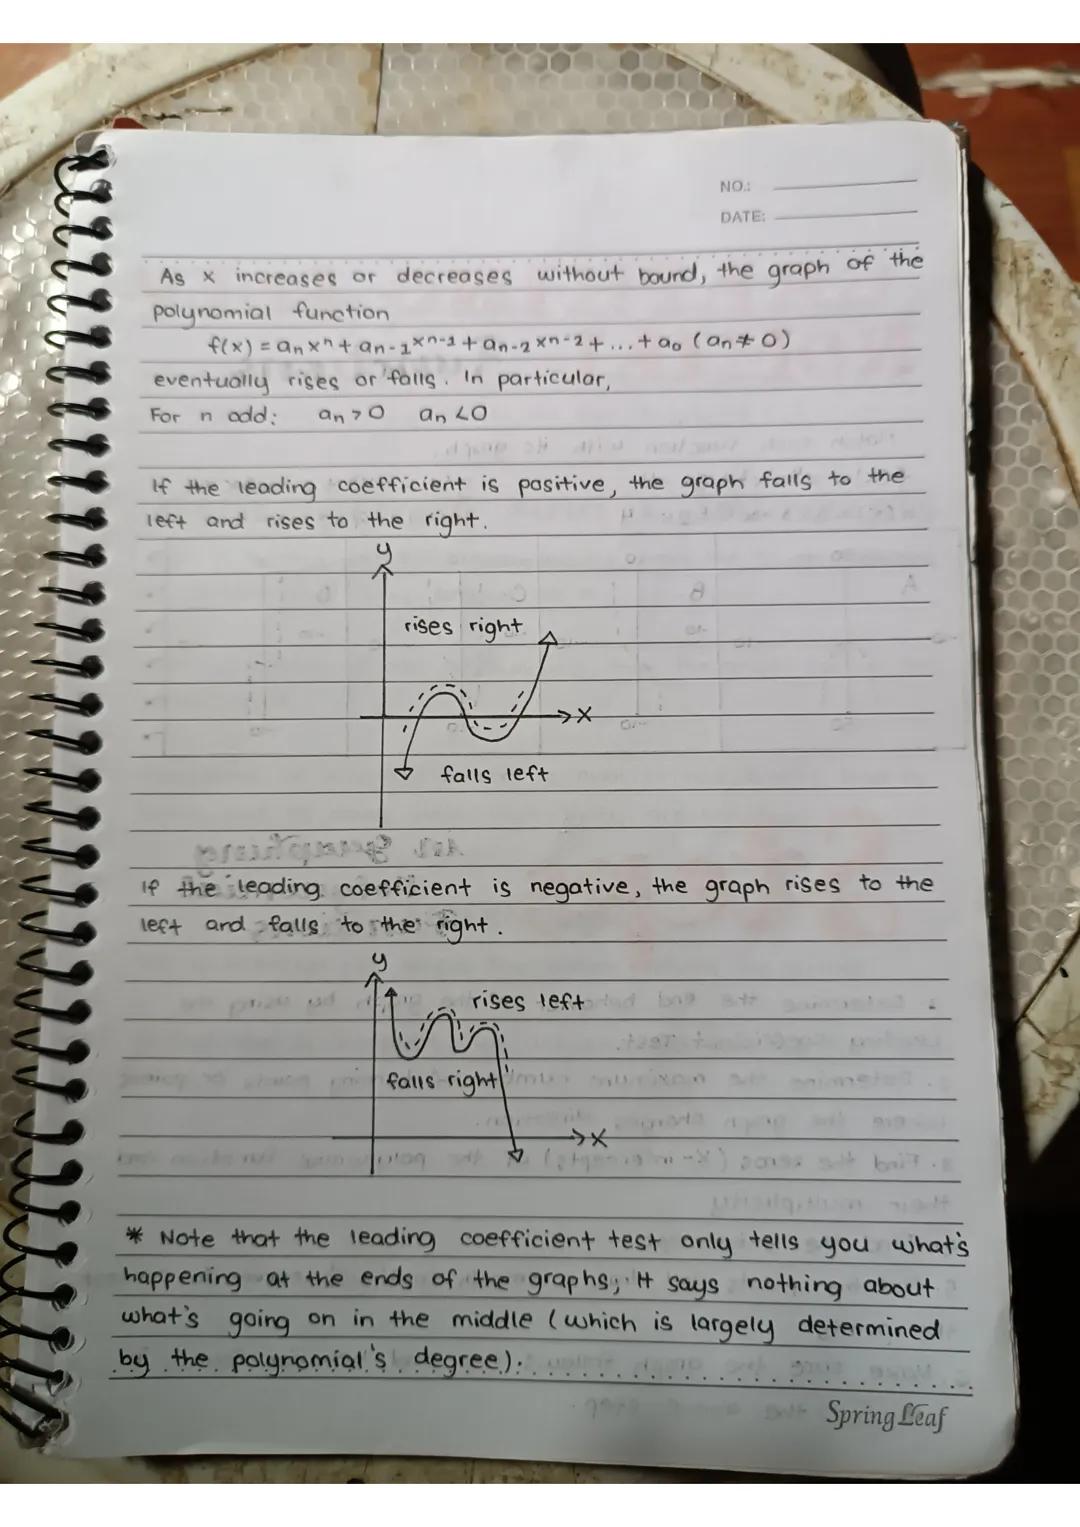 NO.:
DATE:
As x increases or decreases without bound, the graph of the
polynomial function
f(x) = aₙxⁿ + aₙ₋₁xⁿ⁻¹ + aₙ₋₂xⁿ⁻² + ... + a₀ (aₙ ≠ 0)
eventually rises or falls. In particular,
For n odd: aₙ > 0 aₙ < 0
If the leading coefficient is positive, the graph falls to the
left and rises to the right.
y
rises right
x
falls left
If the leading coefficient is negative, the graph rises to the
left and falls to the right.
y
rises left
falls right
x
* Note that the leading coefficient test only tells you what's
happening at the ends of the graphs; It says nothing about
what's going on in the middle (which is largely determined
by the polynomial's degree).
Spring Leaf